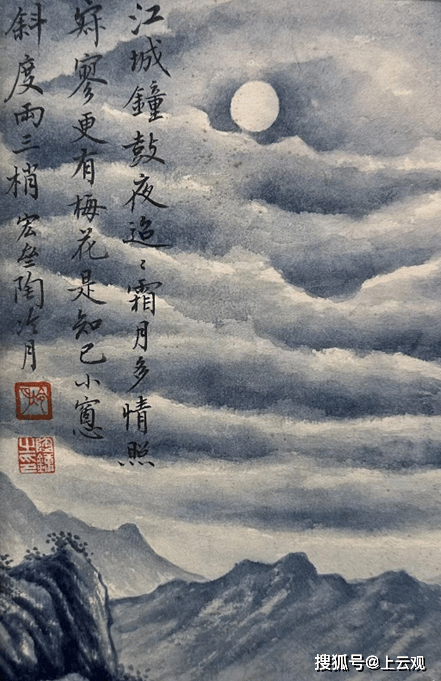 江城鐘鼓夜迢〻霜月多情照
寂寥更有梅花是知己小窻
斜度兩三梢 宏 陶冷月
陶鏞之印
搜狐号@上云观